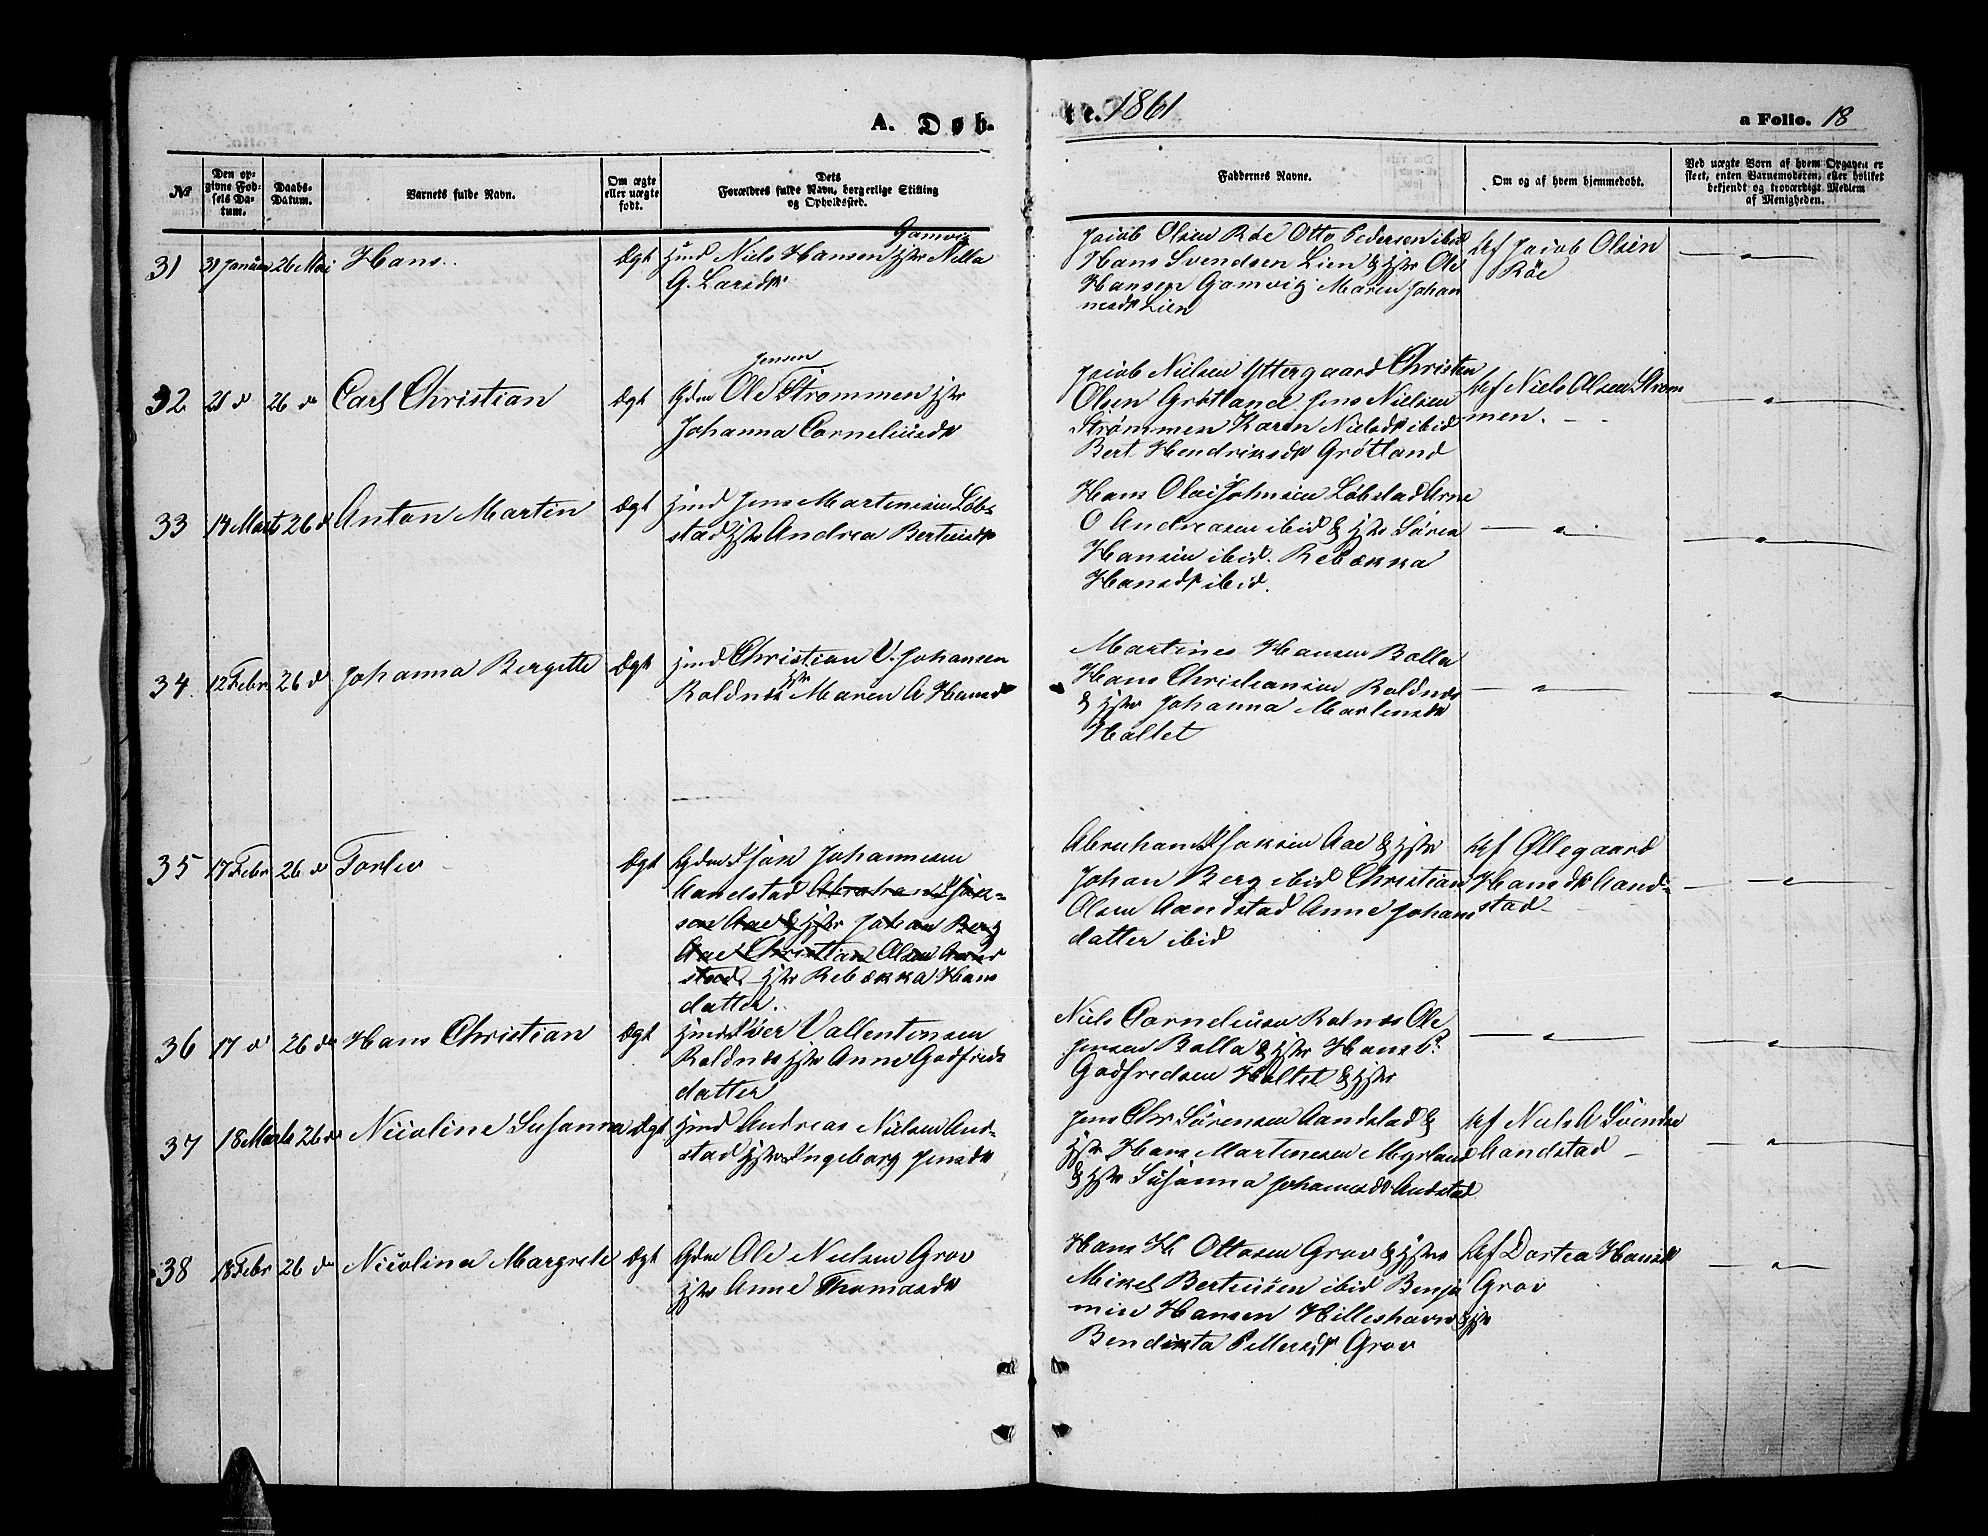 A. Døb-
te. 1861
a Folio. 18
No
Den op-
givne Fød-
sels Da-
tum.
Daabs-
Datum.
Barnets fulde Navn.
Om ægte
eller uægte
født.
Dets
Forældres fulde Navn, borgerlige Stilling
og Opholdssted.
Faddernes Navne.
Om og af hvem hjemmedøbt.
Ved uægte Børn af hvem Opgaven er
skeet, enten Barnemoderen, eller hvilket
bekjendt og troværdigt Medlem
af Menigheden.
31 31 Januar 26 Mai Hans. Ægt
Gamvig
Niels Hansen Hstr Nella
G. Larsdtr
Jacob Olsen Röe Otto Pedersen ibid
Hans Svendsen Lien & Hstr Ole
Hansen Gamvig Maren Johan
nesdtr Lien
Af Jacob Olsen
Röe
32 21 d 26 d Carl Christian Ægt
Jensen
Gdm Ole Strømmen Hstr
Johanna Corneliusdtr
Jacob Nielsen Yttergaard Christen
Olsen Grøtland Jens Nielsen
Strømmen Karen Nielsdtr ibid
Bert Hendriksdtr Grøtland
Af Niels Olsen Strøm
men.
33 14 Marts 26 d Anton Martin Ægt
Jens Martinesen Løb-
stad Hstr Andrea Berteusdtr
Hans Olai Johnsen Løbstad Arne
O Andreasen ibid & Hstr Sören
Hansen ibid. Rebækka
Hansdtr ibid.
34. 12 Febr 26 d Johanna Bergitte Ægt
Christian V. Johansen
Roldnes Hstr Maren A Hansdtr
Martines Hansen Bolla
Hans Christiansen Roldnes
& Hstr Johanna Martensdtr
Holtet
35 17 Febr 26 d Torlev Ægt
Gdm Isak Johannesen
Aandstad Abraham Isak-
sen Aae & Hstr Johan Berg
Aae Christian Olsen Aand
stad Hstr Rebækka Hans
datter.
Abraham Isaksen Aae & Hstr
Johan Berg ibid Christian
Olsen Aandstad Anne Johans
datter ibid
Af Øllegaard
Hansdtr Aand-
stad
36 17 d 26 d Hans Christian Ægt
Iver Vallentinsen
Roldnes Hstr Anne Godfreds
datter
Niels Corneliusen Rolnes Ole
Jensen Bolla & Hstr Hans P.
Godfredsen Holtet & Hstr
37 18 Marts 26 d Nicoline Susanna Ægt
Andreas Nielsen Aand-
stad Hstr Ingeborg Jensdtr
Jens Chr Sörensen Aandstad &
Hstr Hans Martinesen Myrland
& Hstr Susanna Johannesdtr Andstad
Af Niels A Svendsen
Aandstad
38 18 Febr 26 d Nicolina Margrete Ægt
Gdm Ole Nielsen Grov
Hstr Anne Thomasdtr
Hans H. Ottosen Grov & Hstr
Mikel Berteusen ibid Benja
min Hansen Hilleshavn & Hstr
Bendikta Pettersdtr Grov
Af Dortea Hansdtr
Grov